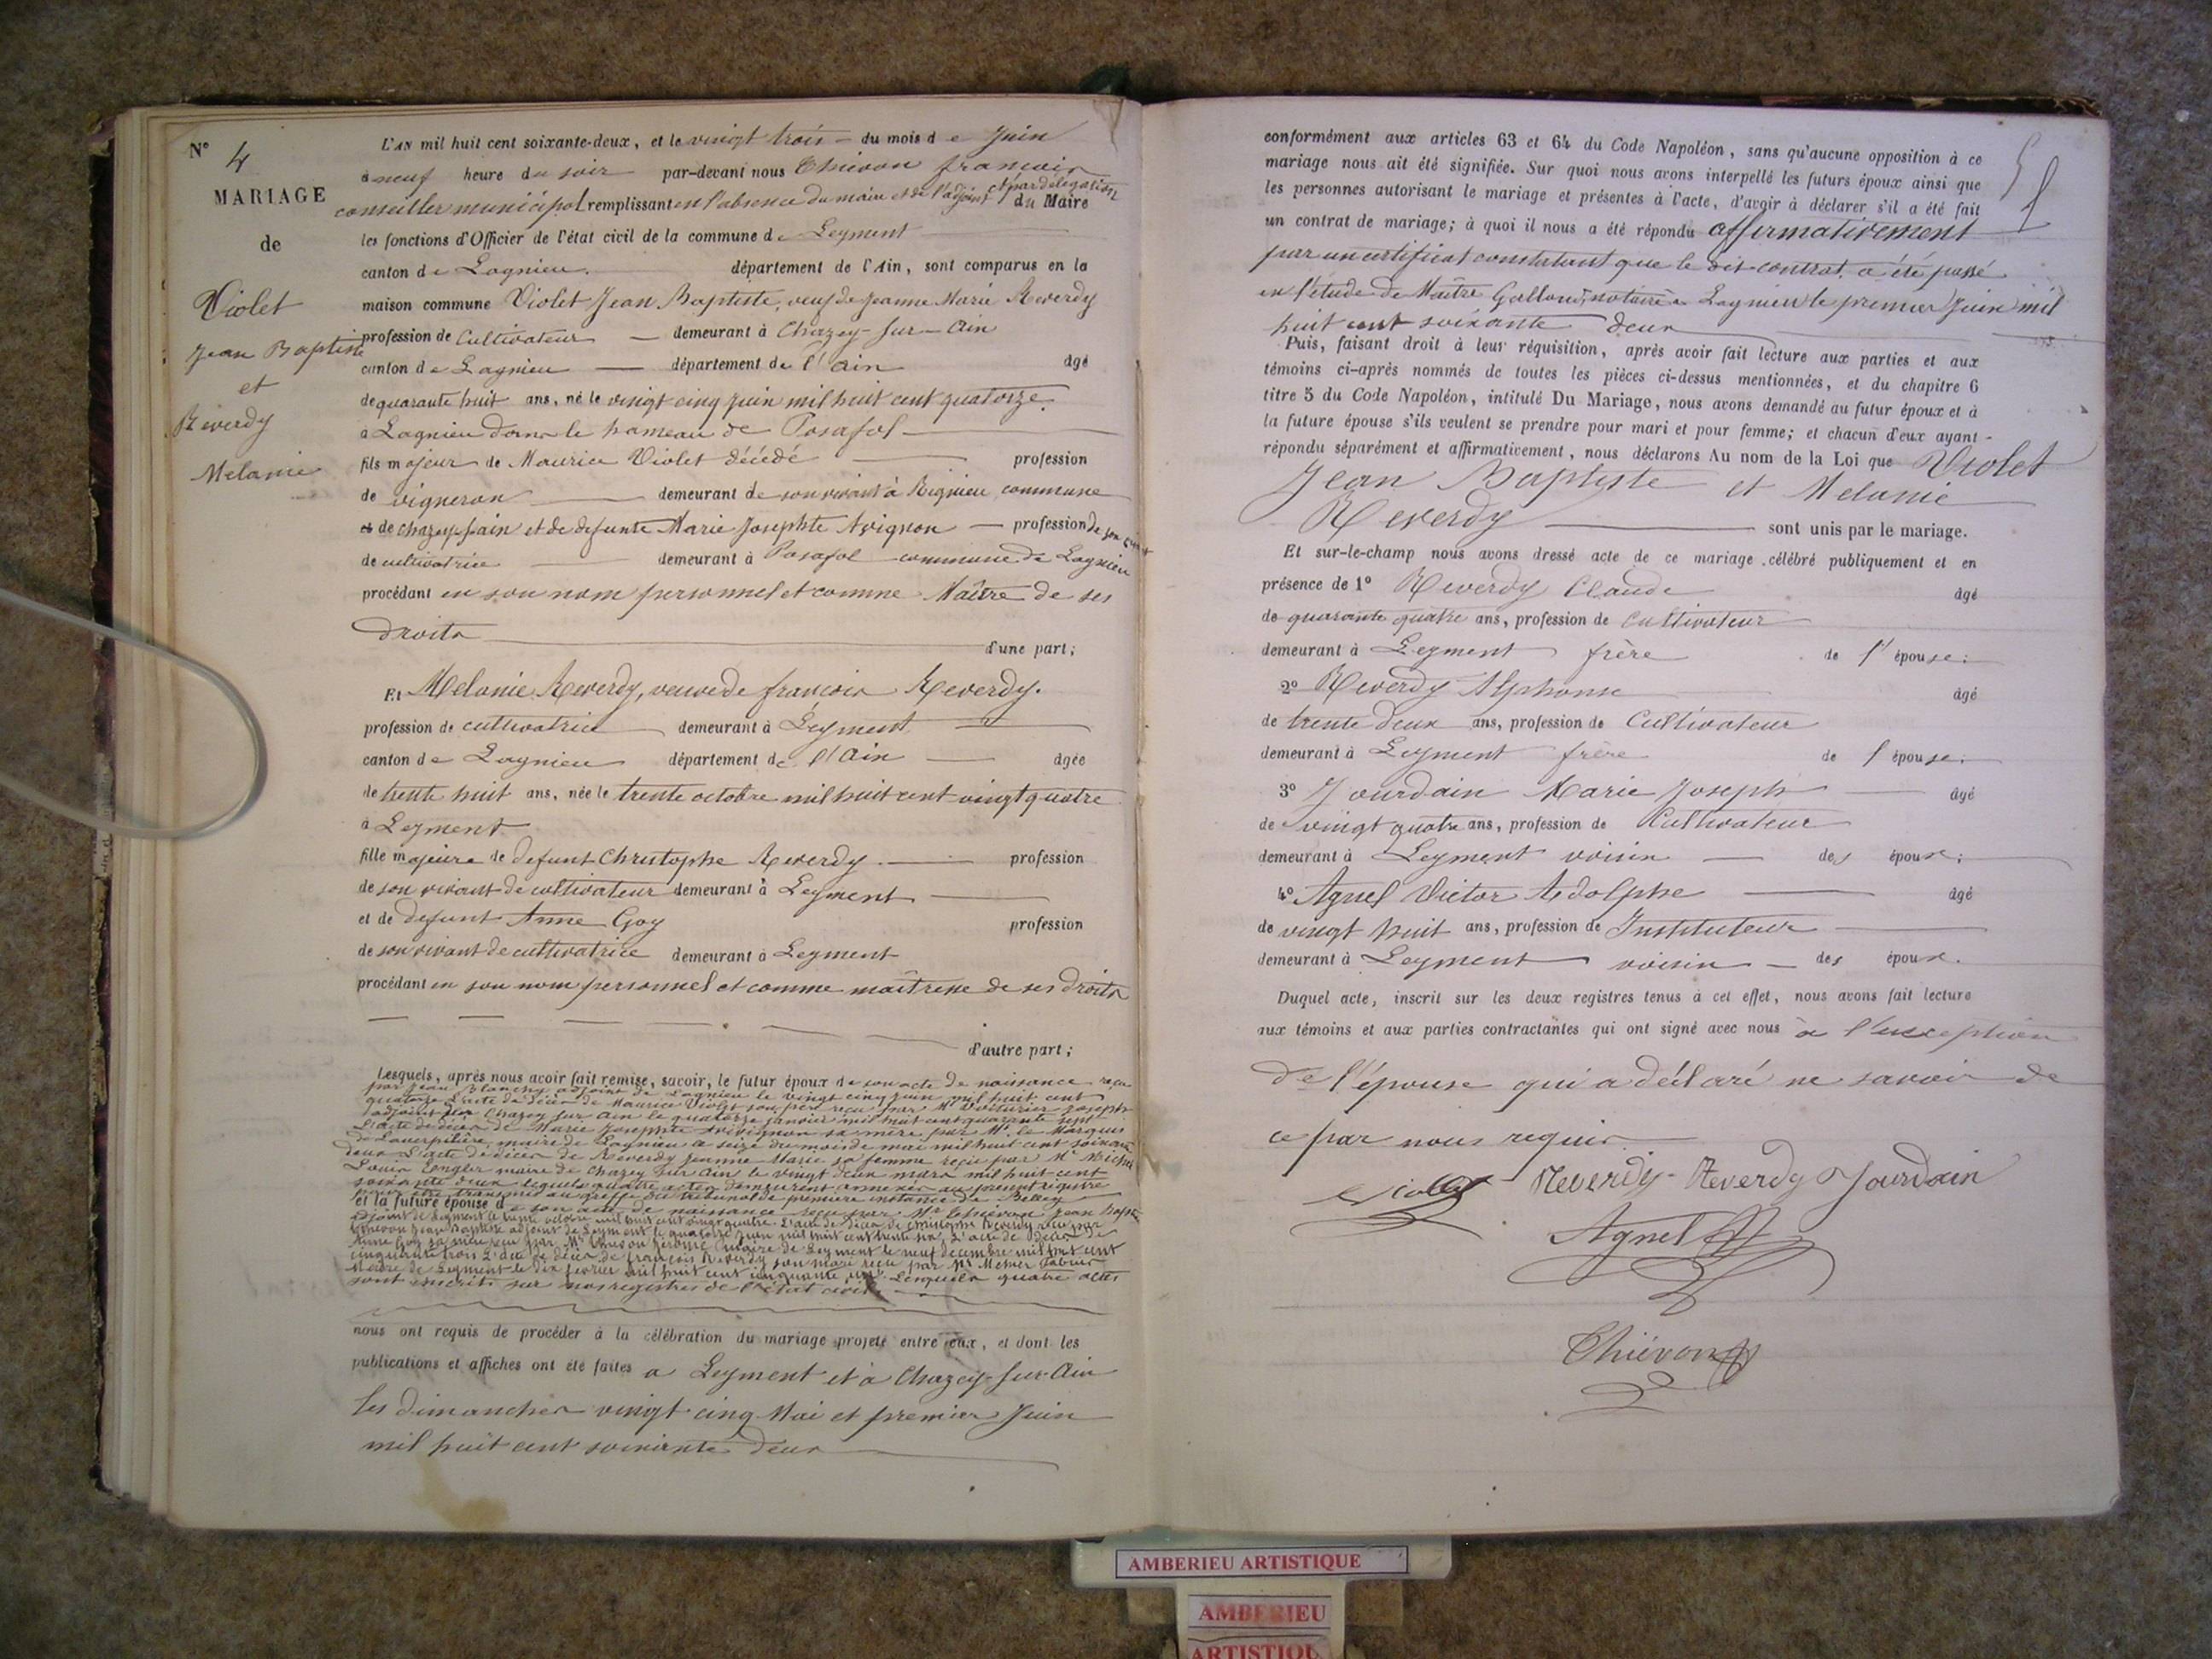 N° 4
MARIAGE
de
Violet
Jean Baptiste
et
Reverdy
Melanie
L'AN mil huit cent soixante-deux, et le vingt trois du mois de Juin
à neuf heure du soir par-devant nous Thiévon françois
conseiller municipal remplissant en l'absence du maire et de l'adjoint et par délégation du Maire
les fonctions d'Officier de l'état civil de la commune de Leyment
canton de Lagnieu. département de l'Ain, sont comparus en la
maison commune Violet Jean Baptiste, veuf de Jeanne Marie Reverdy
profession de Cultivateur demeurant à Chazey-sur-Ain
canton de Lagnieu département de l'Ain âgé
de quarante huit ans, né le vingt cinq juin mil huit cent quatorze.
à Lagnieu dans le hameau de Posafol
fils majeur de Maurice Violet décédé profession
de vigneron demeurant de son vivant à Rignieu commune
et de chazey s ain et de defunte Marie Josephte Avignon profession de son vivant
de cultivatrice demeurant à Posafol commune de Lagnieu
procédant en son nom personnel et comme Maître de ses
droits
d'une part;
Et Melanie Reverdy, veuve de françois Reverdy.
profession de cultivatrice demeurant à Leyment
canton de Lagnieu département de l'Ain âgée
de trente huit ans, née le trente octobre mil huit cent vingt quatre
à Leyment
fille majeure de defunt Christophe Reverdy profession
de son vivant de cultivateur demeurant à Leyment
et de defunt Anne Goy profession
de son vivant de cultivatrice demeurant à Leyment
procédant en son nom personnel et comme maîtresse de ses droits
d'autre part;
Lesquels, après nous avoir fait remise, savoir, le futur époux de son acte de naissance reçu
par Jean Blanchy adjoint de Lagnieu le vingt cinq juin mil huit cent
quatorze L'acte de décès de Maurice Violet son père reçu par Mr Voiturier Joseph
adjoint de Chazey sur Ain le quatorze janvier mil huit cent quarante sept
L'acte de décès de Marie Josephte Avignon sa mère par Mr le Marquis
maire de Lagnieu le seize du mois de mai mil huit cent soixante
deux L'acte de décès de Reverdy Jeanne Marie sa femme reçu par Mr Michel
Louis maire de Chazey sur Ain le vingt deux mars mil huit cent
soixante deux lesquels quatre actes demeurent annexés au présent registre
pour être transmis au greffe du tribunal de première instance de Belley
et la future épouse de son acte de naissance reçu par Mr Thiévon Jean Bapte
adjoint de Leyment le trente octobre mil huit cent vingt quatre. L'acte de décès de Christophe Reverdy reçu par
Thiévon Jean Baptiste adjoint de Leyment le quatorze juin mil huit cent trente six L'acte de décès de
Anne Goy sa mère reçu par Mr Thiévon Jérôme maire de Leyment le neuf decembre mil huit cent
cinquante trois L'acte de décès de françois Reverdy son mari reçu par Mr
Maire de Leyment le dix fevrier mil huit cent cinquante Lesquels quatre actes
sont inscrits sur nos registres de l'état civil
nous ont requis de procéder à la célébration du mariage projeté entre eux, et dont les
publications et affiches ont été faites à Leyment et à Chazey-sur-Ain
les dimanches vingt cinq Mai et premier Juin
mil huit cent soixante deux
conformément aux articles 63 et 64 du Code Napoléon, sans qu'aucune opposition à ce
mariage nous ait été signifiée. Sur quoi nous avons interpellé les futurs époux ainsi que
les personnes autorisant le mariage et présentes à l'acte, d'avoir à déclarer s'il a été fait
un contrat de mariage; à quoi il nous a été répondu affirmativement
par un certificat constatant que le dit contrat a été passé
en l'étude de Maître Galland, notaire à Lagnieu le premier Juin mil
huit cent soixante deux
Puis, faisant droit à leur réquisition, après avoir fait lecture aux parties et aux
témoins ci-après nommés de toutes les pièces ci-dessus mentionnées, et du chapitre 6
titre 5 du Code Napoléon, intitulé Du Mariage, nous avons demandé au futur époux et à
la future épouse s'ils veulent se prendre pour mari et pour femme; et chacun d'eux ayant
répondu séparément et affirmativement, nous déclarons Au nom de la Loi que Violet
Jean Baptiste et Melanie
Reverdy sont unis par le mariage.
Et sur-le-champ nous avons dressé acte de ce mariage célébré publiquement et en
présence de 1° Reverdy Claude âgé
de quarante quatre ans, profession de Cultivateur
demeurant à Leyment frère de l'épouse;
2° Reverdy Alphonse âgé
de trente deux ans, profession de Cultivateur
demeurant à Leyment frère de l épouse;
3° Jourdain Marie Joseph âgé
de vingt quatre ans, profession de Cultivateur
demeurant à Leyment voisin des époux;
4° Agnel Victor Adolphe âgé
de vingt huit ans, profession de Instituteur
demeurant à Leyment voisin des époux.
Duquel acte, inscrit sur les deux registres tenus à cet effet, nous avons fait lecture
aux témoins et aux parties contractantes qui ont signé avec nous à l'exception
de l'épouse qui a déclaré ne savoir de
ce par nous requis
Violet Reverdy Reverdy Jourdain
Agnel
Thiévon
AMBERIEU ARTISTIQUE
AMBERIEU
ARTISTIQU